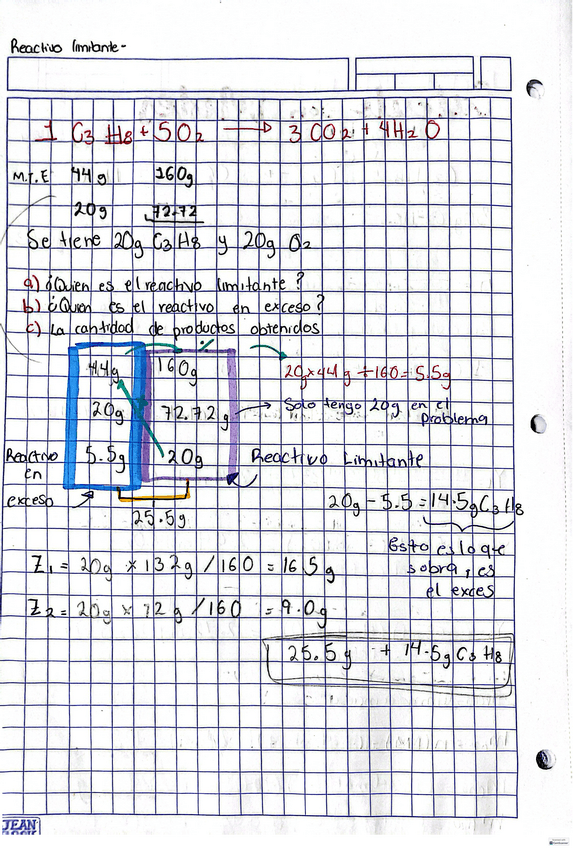 Reactivo limitante-
1 C3 H8 + 5O2 → 3 CO2 + 4H2O
M.T.E 44g 160g
20g 72.72
Se tiene 20g C3H8 y 20g O2
a) ¿Quien es el reactivo limitante?
b) ¿Quien es el reactivo en exceso?
c) La cantidad de productos obtenidos
44g 160g 20g×44g÷160=5.5g
20g 72.72g → Solo tengo 20g en el
problema
Reactivo 5.5g 20g Reactivo Limitante
en
exceso 20g-5.5=14.5gC3H8
25.5g
Esto es lo que
sobra, es
el exces
Z1 = 20g × 132g/160 = 16.5g
Z2 = 20g × 72g/160 = 9.0g
25.5g + 14.5g C3 H8
JEAN